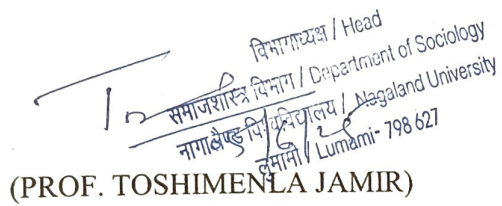 विभागाध्यक्ष / Head
समाजशास्त्र विभाग / Department of Sociology
नागालैण्ड विश्वविद्यालय / Nagaland University
लुमामी / Lumami- 798 627
(PROF. TOSHIMENLA JAMIR)